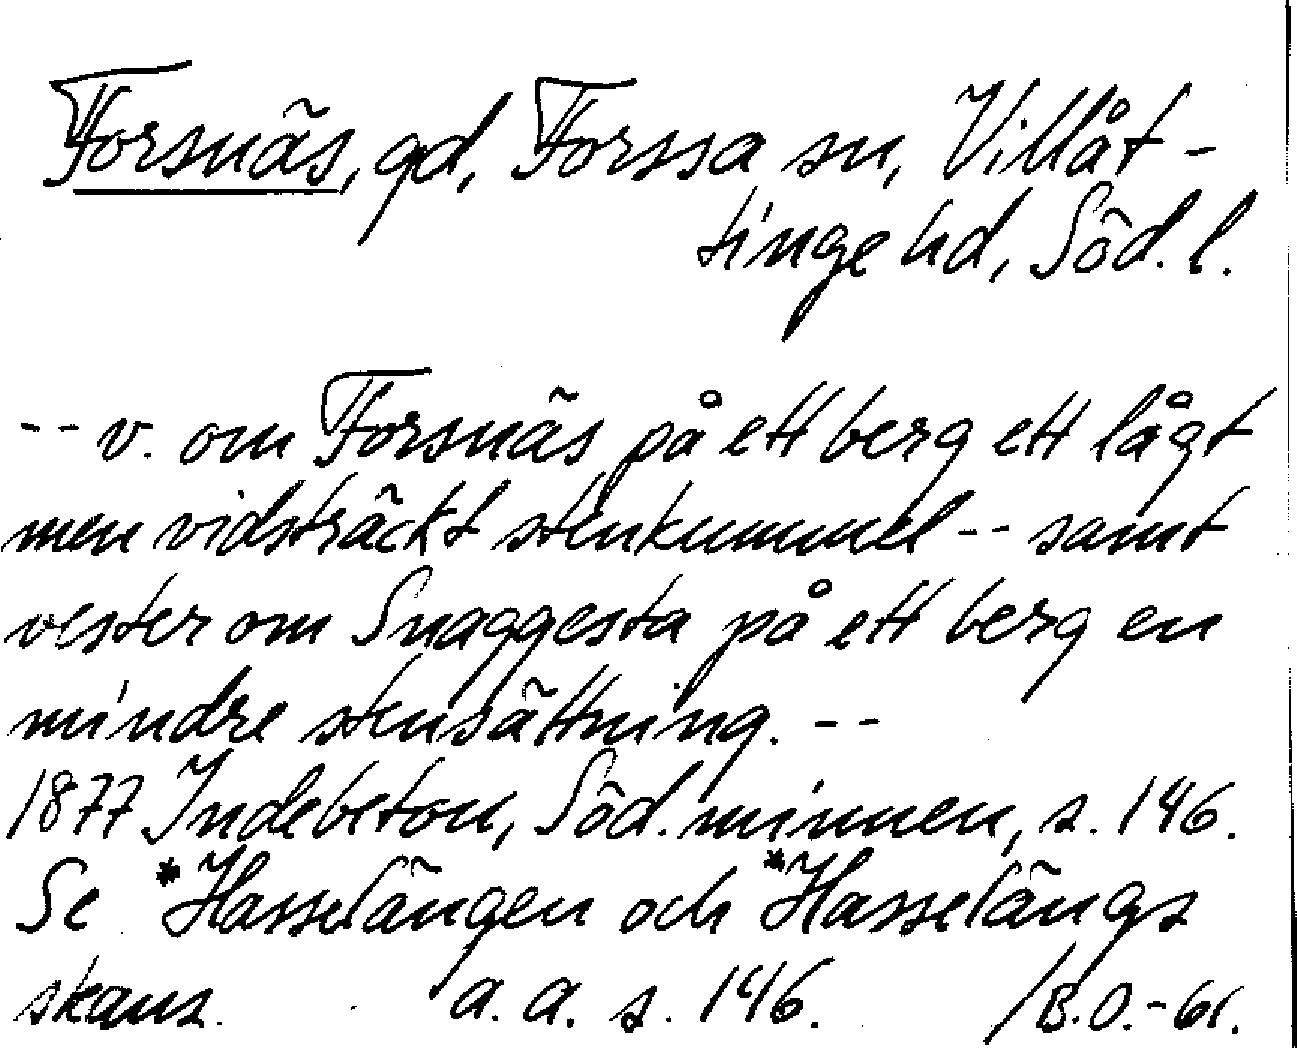 Forsnäs, gd, Forssa sn, Villåt-
tinge hd, Söd. l.
-- v. om Forsnäs på ett berg ett lågt
men vidsträckt stenkummel -- samt
vester om Snaggesta på ett berg en
mindre stensättning. --
1877 Indebetou, Söd. minnen, s. 146.
Se *Hasselängen och *Hasselängs
skans. a. a. s. 146. /B.O.-61.